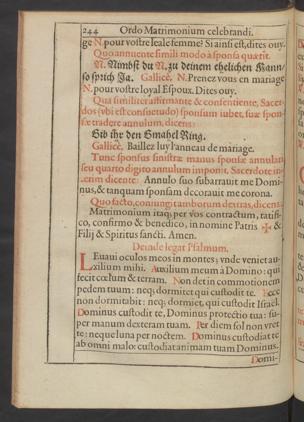 244 Ordo Matrimonium celebrandi.
ge N. pour vostre leale femme? Si ainsi est, dites ouy.
Quo annuente simili modo à sponsa quærit.
N. Nimbst du N. zu deinem ehelichen Mann/
so sprich Ja. Gallicè, N. Prenez vous en mariage
N. pour vostre loyal Espoux. Dites ouy.
Qua similiter affirmante & consentiente, Sacer-
dos (vbi est consuetudo) sponsum iubet, suæ spon-
sæ tradere annulum, dicens:
Gib ihr den Gmahel Ring.
Gallicè, Baillez luy l'anneau de mariage.
Tunc sponsus sinistræ manus sponsæ annulari
seu quarto digito annulum imponit, Sacerdote in-
terim dicente: Annulo suo subarrauit me Domi-
nus, & tanquam sponsam decorauit me corona.
Quo facto, coniungi tamborum dextras, dicens:
Matrimonium itaq; per vos contractum, ratifi-
co, confirmo & benedico, in nomine Patris ✠ &
Filij & Spiritus sancti. Amen.
Deinde legat Psalmum.
LEuaui oculos meos in montes; vnde veniet au-
xilium mihi. Auxilium meum à Domino: qui
fecit cœlum & terram. Non det in commotionem
pedem tuum: neq; dormitet qui custodit te. Ecce
non dormitabit: neq; dormiet, qui custodit Israël.
Dominus custodit te, Dominus protectio tua: su-
per manum dexteram tuam. Per diem sol non vret
te: neque luna per noctem. Dominus custodiat te
ab omni malo: custodiat animam tuam Dominus.
Domi-